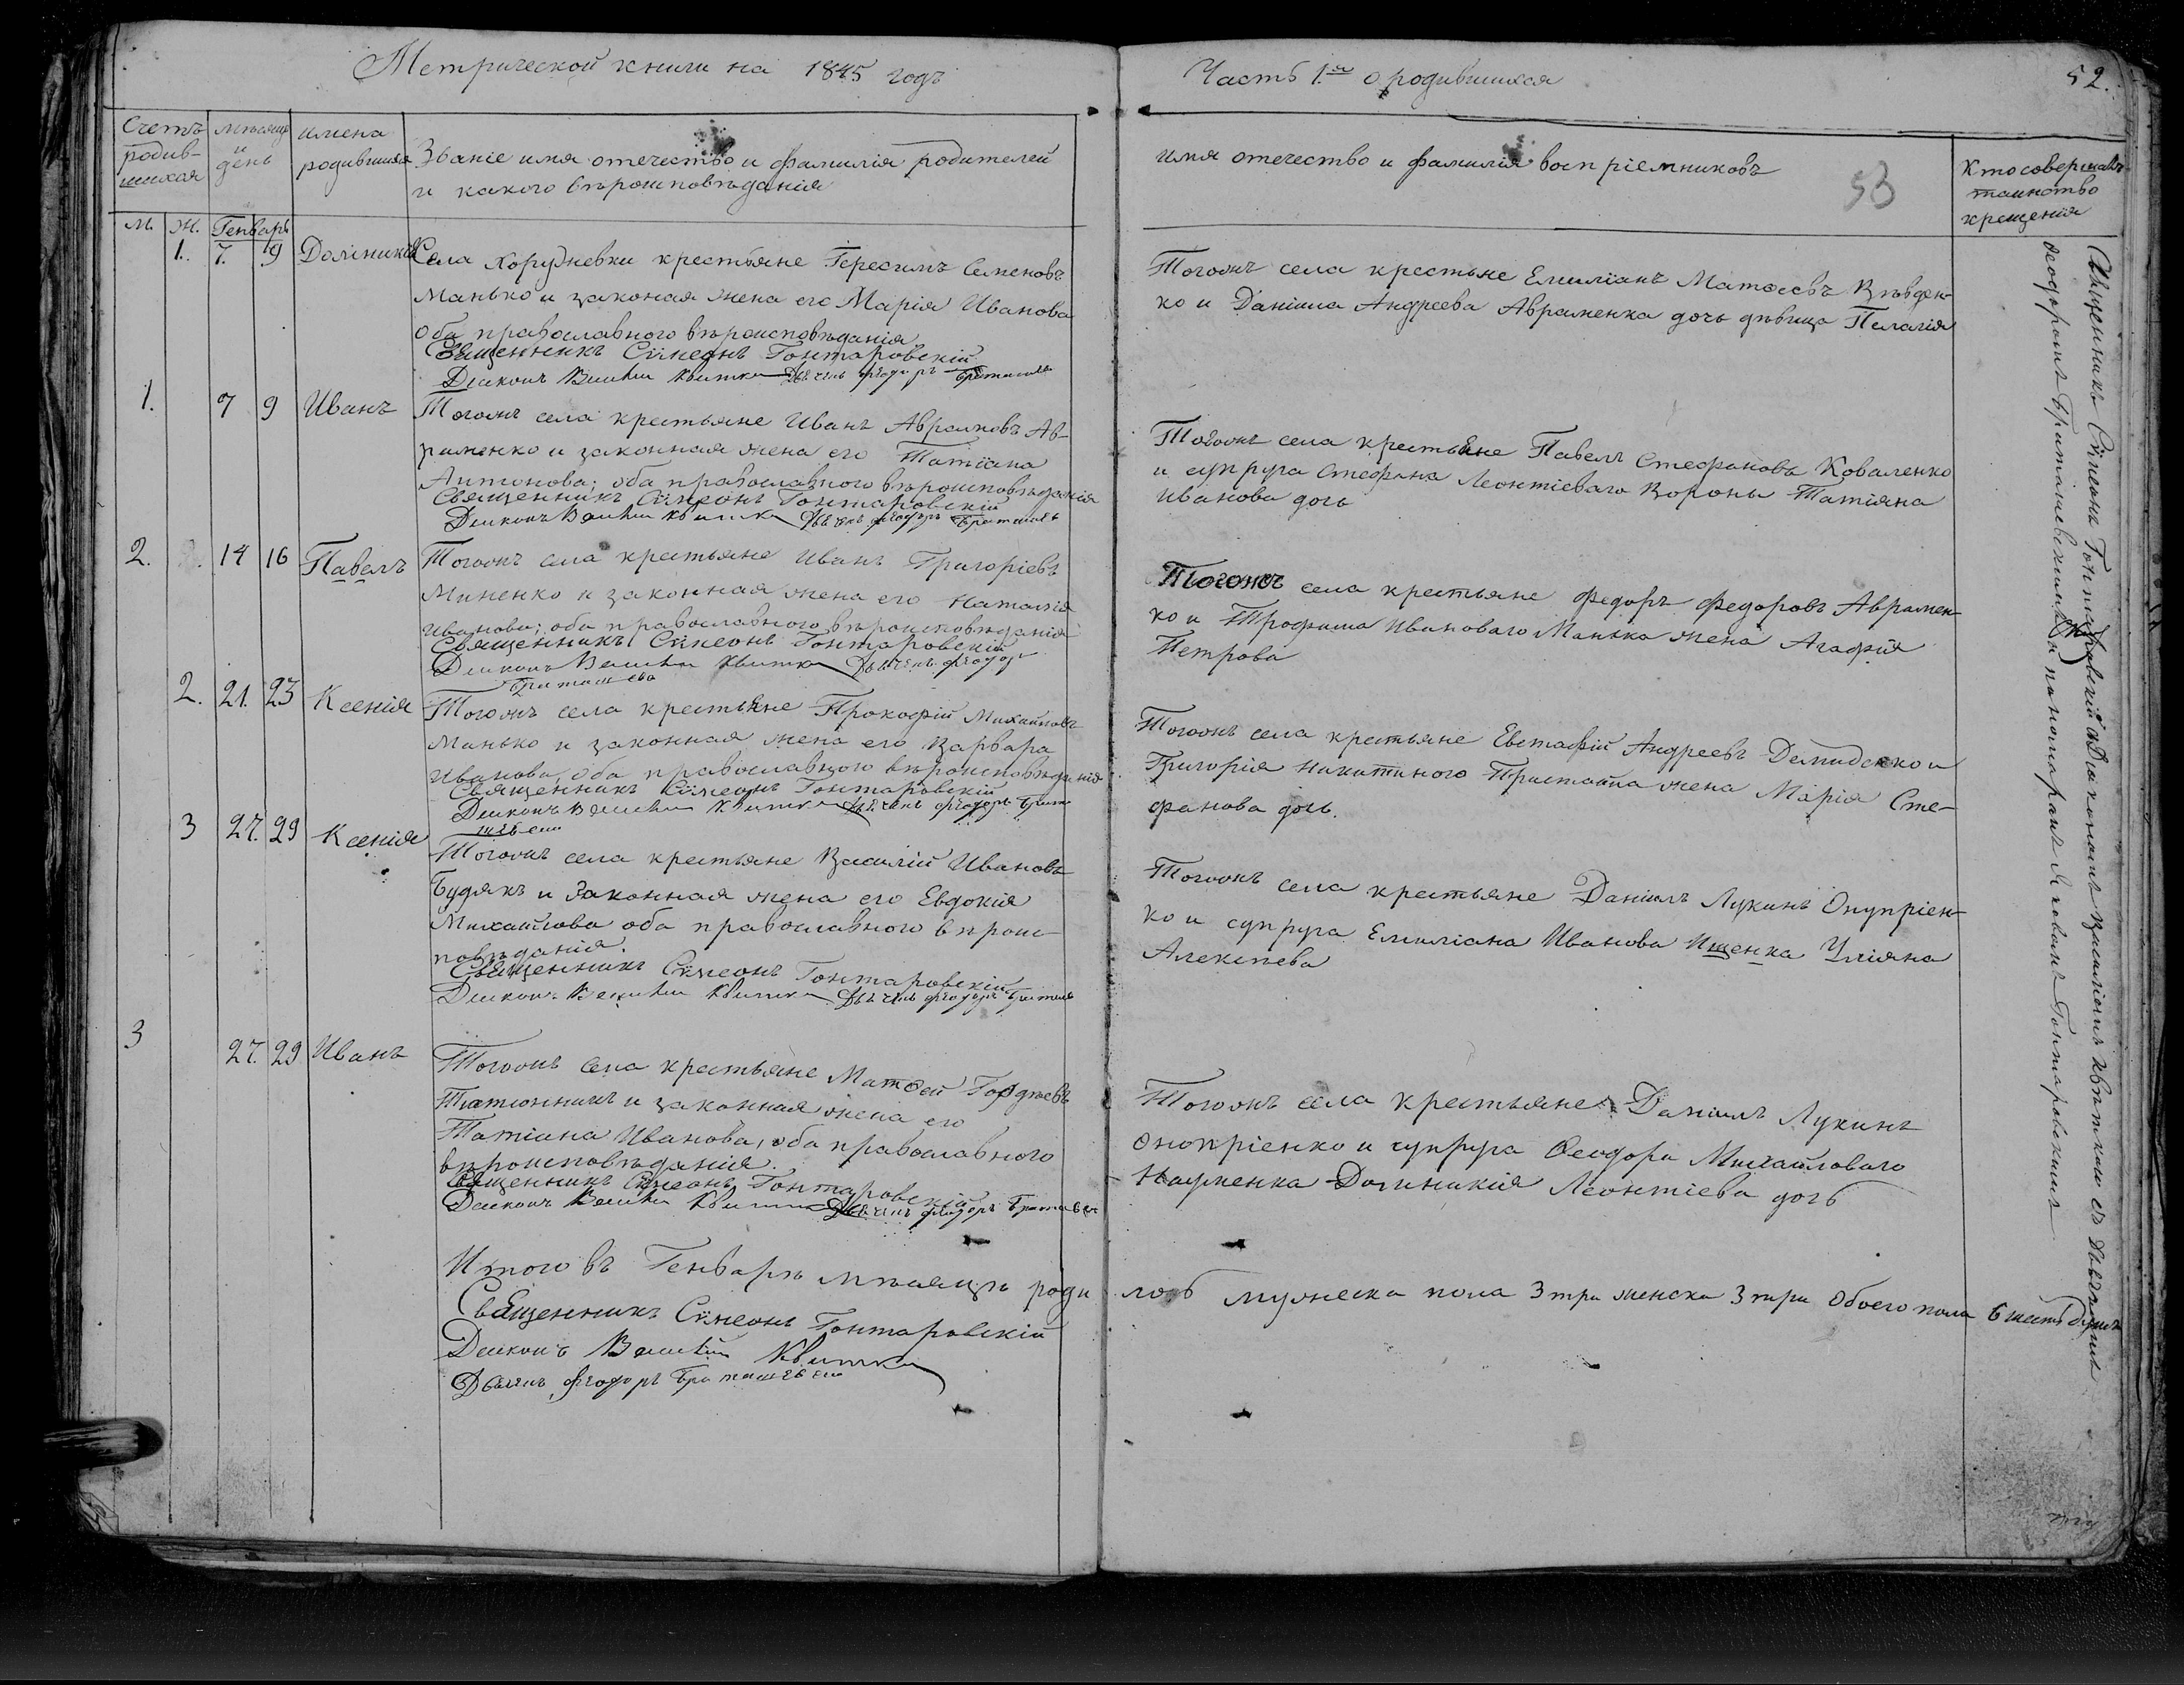 Метрической книги на 1845 годъ
Часть 1.я о родившихся
52.
53
Счетъ родив-
шихся
мѣсяцъ
и
день
имена
родившихся
Званіе имя отечество и фамилія родителей
и какого вѣроисповѣданія
имя отечество и фамилія воспріемниковъ
Кто совершалъ
таинство
крещенія
М. Ж. Генварь
1. 7. 9 Домникія
Села Хоружевки крестьяне Герасимъ Семеновъ
Манько и законая жена его Марія Иванова
оба православного вѣроисповѣданія
Священникъ Сѵмеонъ Гонтаровскій
Диаконъ Квитка
Тогожъ села крестьяне Емиліанъ Матѳеевъ
ко и Даніила Андреева Авраменка дочь дѣвица Пелагія
1. 7 9 Иванъ
Тогожъ села крестьяне Иванъ Аврамовъ Ав-
раменко и законная жена его Татіана
Антонова; оба православного вѣроисповѣданія
Священникъ Сѵмеонъ Гонтаровскій
Диаконъ Квитка
Тогожъ села крестьяне Павелъ Стефановъ Коваленко
и супруга Стефана Леонтіеваго Вороны Татіяна
Иванова дочь
2. 14 16 Павелъ
Тогожъ села крестьяне Иванъ Григоріевъ
Миненко и законная жена его Наталія
Иванова; оба православного вѣроисповѣданія
Священникъ Сѵмеонъ Гонтаровскій
Диаконъ Квитка
Тогожъ села крестьяне Федоръ Федоровъ Аврамен-
ко и Трофима Ивановаго Манька жена Агафія
Петрова
2. 21. 23 Ксенія
Тогожъ села крестьяне Прокофій Михайловъ
Манько и законная жена его Варвара
Иванова, оба православного вѣроисповѣданія
Священникъ Сѵмеонъ Гонтаровскій
Диаконъ Квитка
Тогожъ села крестьяне Евстафій Андреевъ Демиденко и
Григорія Никитиного Тристайла жена Марія Сте-
фанова дочь.
3 27. 29 Ксенія
Тогожъ села крестьяне Василій Ивановъ
Будякъ и законная жена его Евдокія
Михайлова оба православного вѣроис-
повѣданія.
Священникъ Сѵмеонъ Гонтаровскій
Диаконъ Квитка
Тогожъ села крестьяне Даніилъ Лукинъ Онупріен-
ко и супруга Емиліана Иванова Ищенка Уліяна
Алексѣева
3 27. 29 Иванъ
Тогожъ села крестьяне Матѳей Гордѣевъ
и законная жена его
Татіана Иванова, оба православного
вѣроисповѣданія.
Священникъ Сѵмеонъ Гонтаровскій
Диаконъ Квитка
Тогожъ села крестьяне Даніилъ Лукинъ
Онопріенко и супруга Ѳеодора Михайловаго
Науменка Домникія Леонтіева дочь
Итого въ Генварѣ мѣсяцѣ роди лось мужеска пола 3 три женска 3 три обоего пола 6 шесть душъ
Священникъ Сѵмеонъ Гонтаровскій
Диаконъ Квитка
Священникъ Сѵмеонъ Гонтаровскій и Діакономъ Василіемъ Квиткою съ
и пономаремъ Яковомъ Гонтаровскимъ